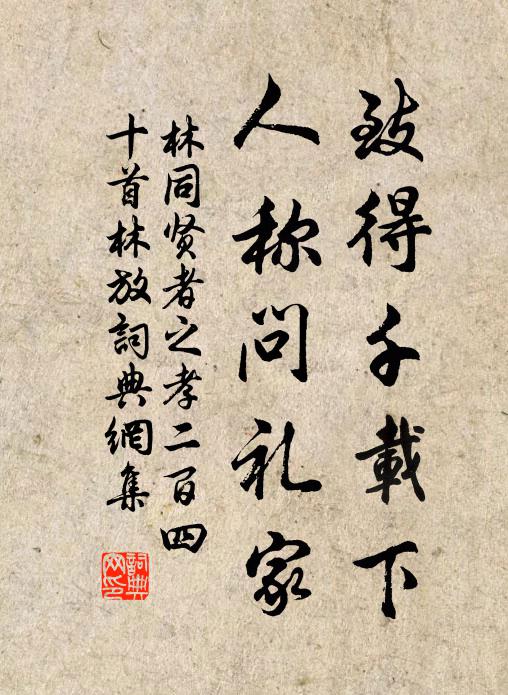 致得千載下
人称问礼家
林同贤者之孝二百四
十首林放詞典網集
詞典
网印